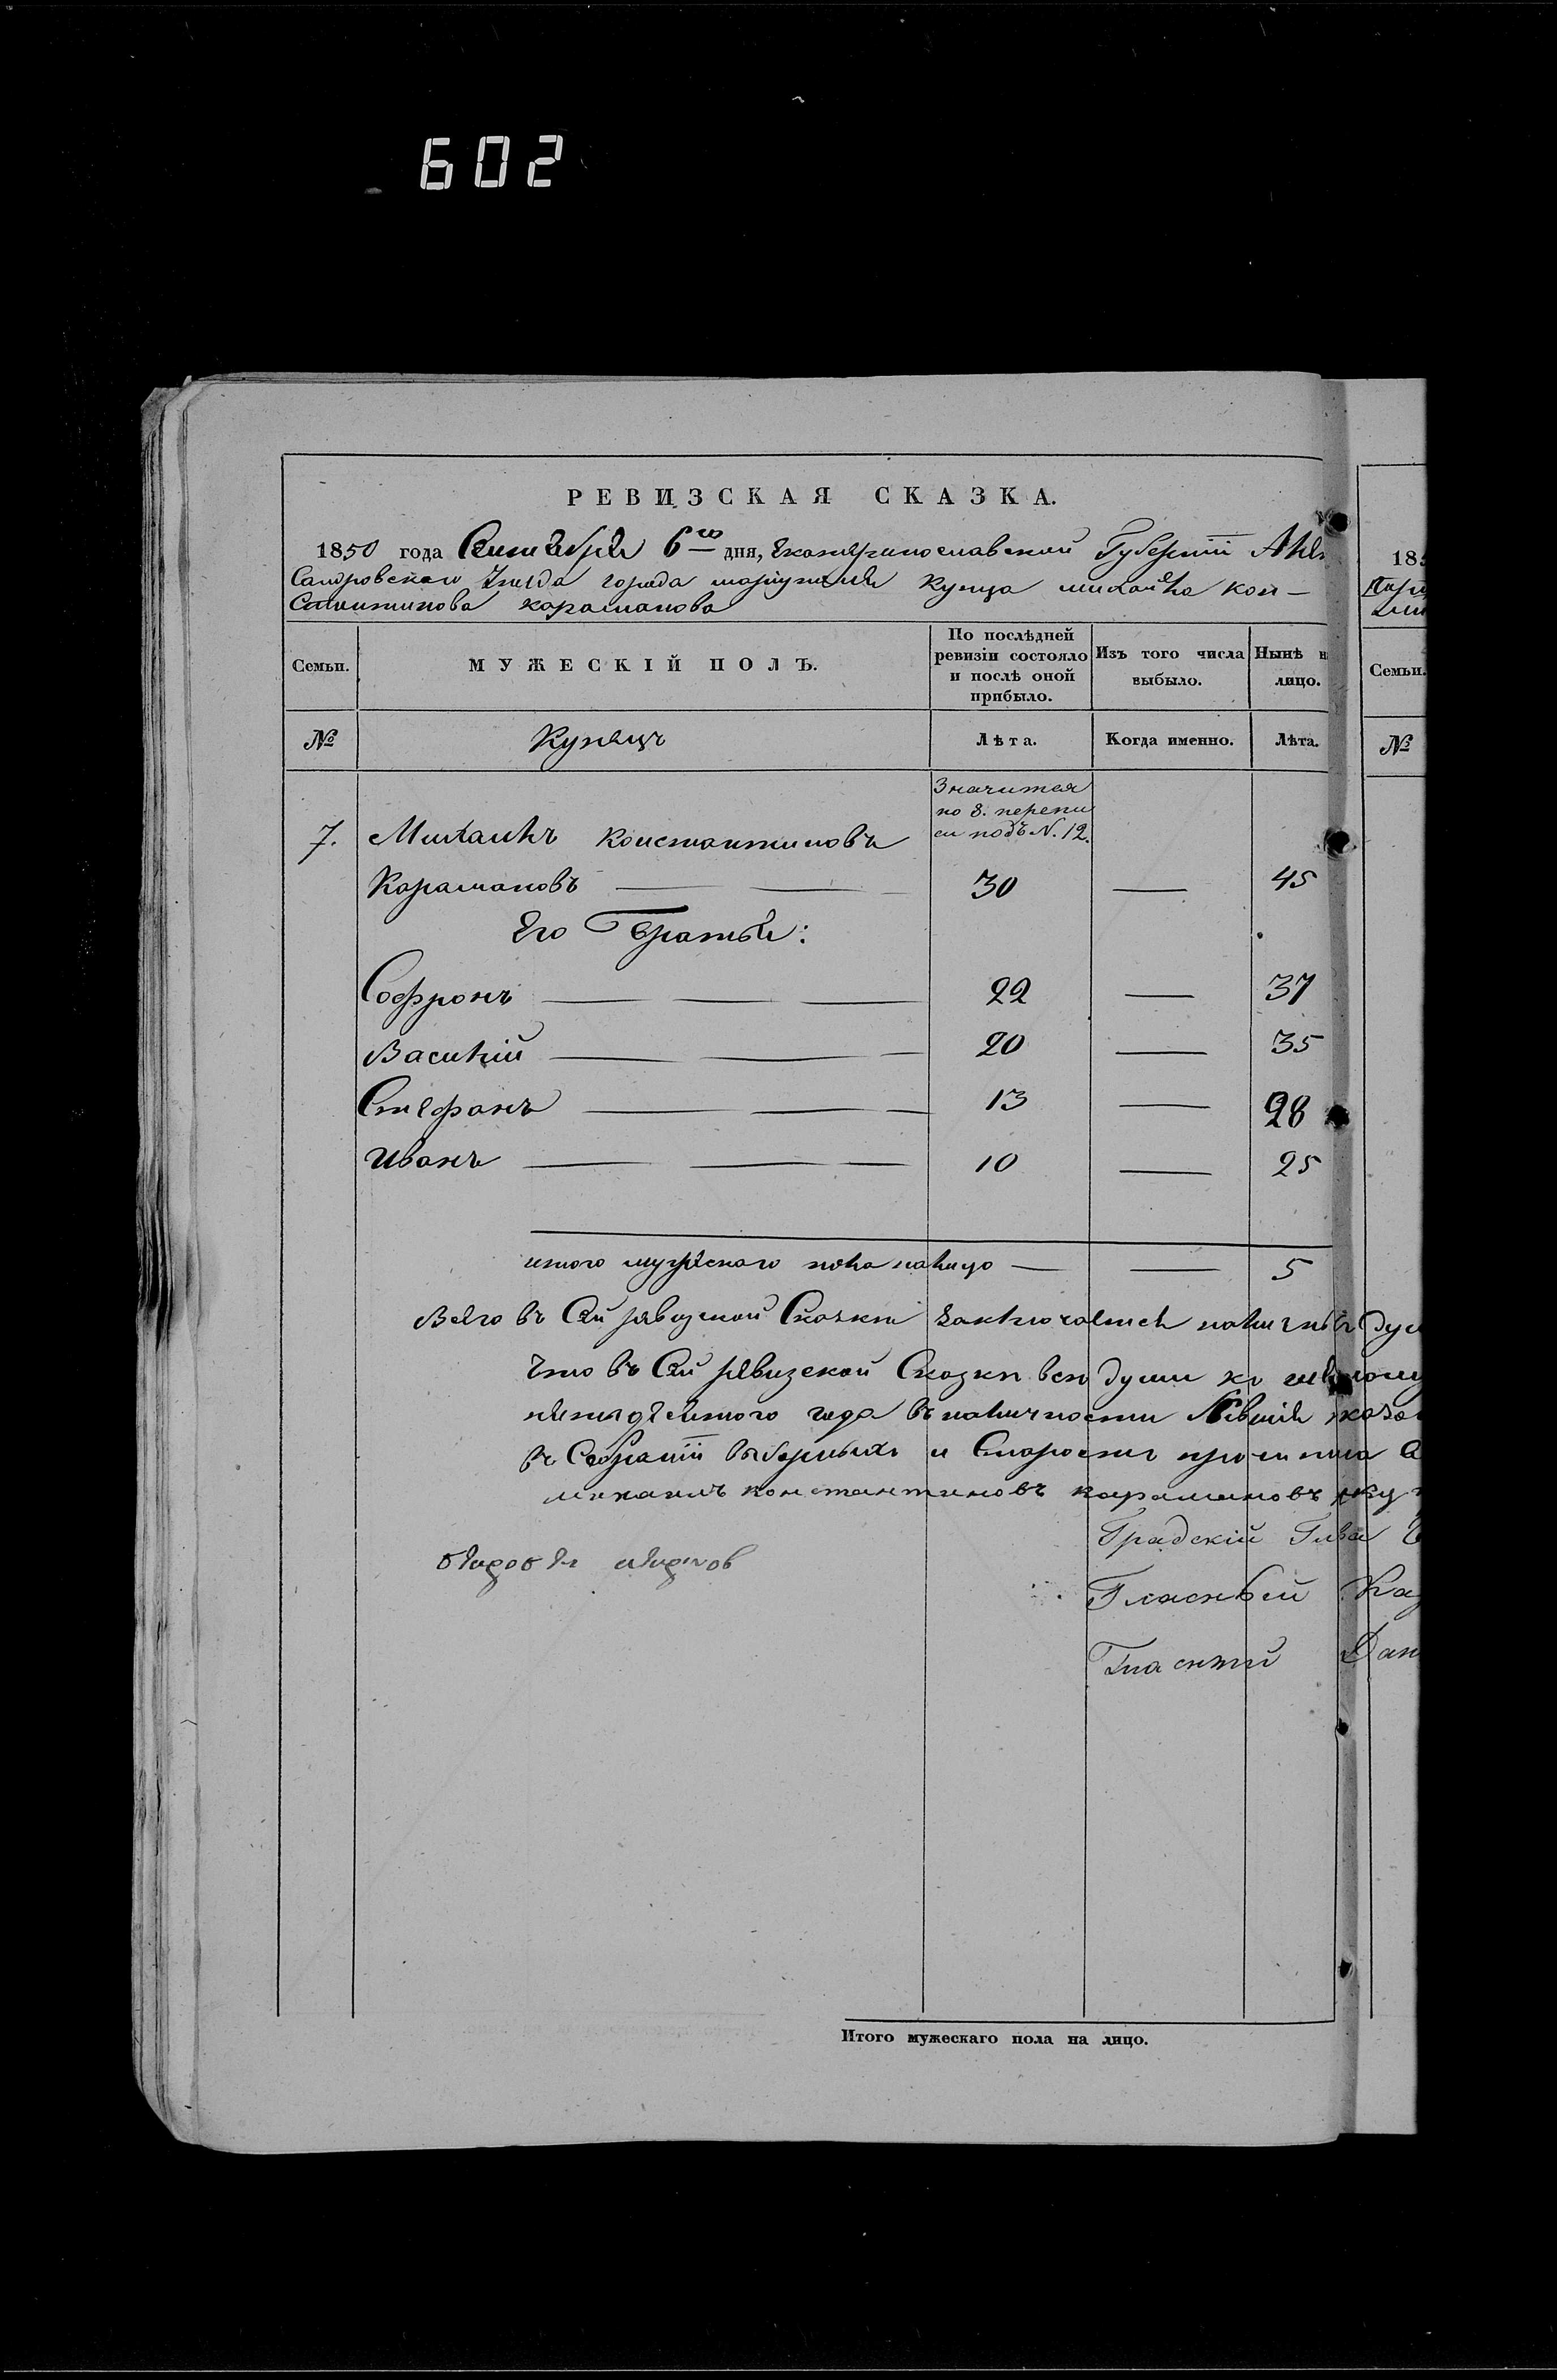 602
РЕВИЗСКАЯ СКАЗКА.
1850 года Сентября 6го дня, Екатеринославской Губернiи Алек
сандровскаго Уезда города марiуполя Купца михайла Кон-
стантинова караманова
Семьи.
МУЖЕСКIЙ ПОЛЪ.
По послѣдней ревизiи состояло и послѣ оной прибыло.
Изъ того числа выбыло.
Нынѣ н
лицо.
№
Купецъ
Лѣта.
Когда именно.
Лѣта.
Значится
по 8. перепи
си подъ N. 12.
7. Михаилъ Константиновъ
Карамановъ 30 — 45
Его братья:
Софронъ 22 — 37
Василiй 20 — 35
Стефанъ 13 — 28
Иванъ 10 — 25
итого мужескаго пола налицо — — 5
Всего въ Сей ревизской Сказки заключается наличныхъ душ
Что въ Сей ревизской Сказки все души къ
пятидесятого года въ наличности
въ Собранiи выборныхъ и Старости
михаилъ константиновъ карамановъ
Градскiй Глва
Гласный Ка
Гласный Дан
Итого мужескаго пола на лицо.
185
Семьи.
№